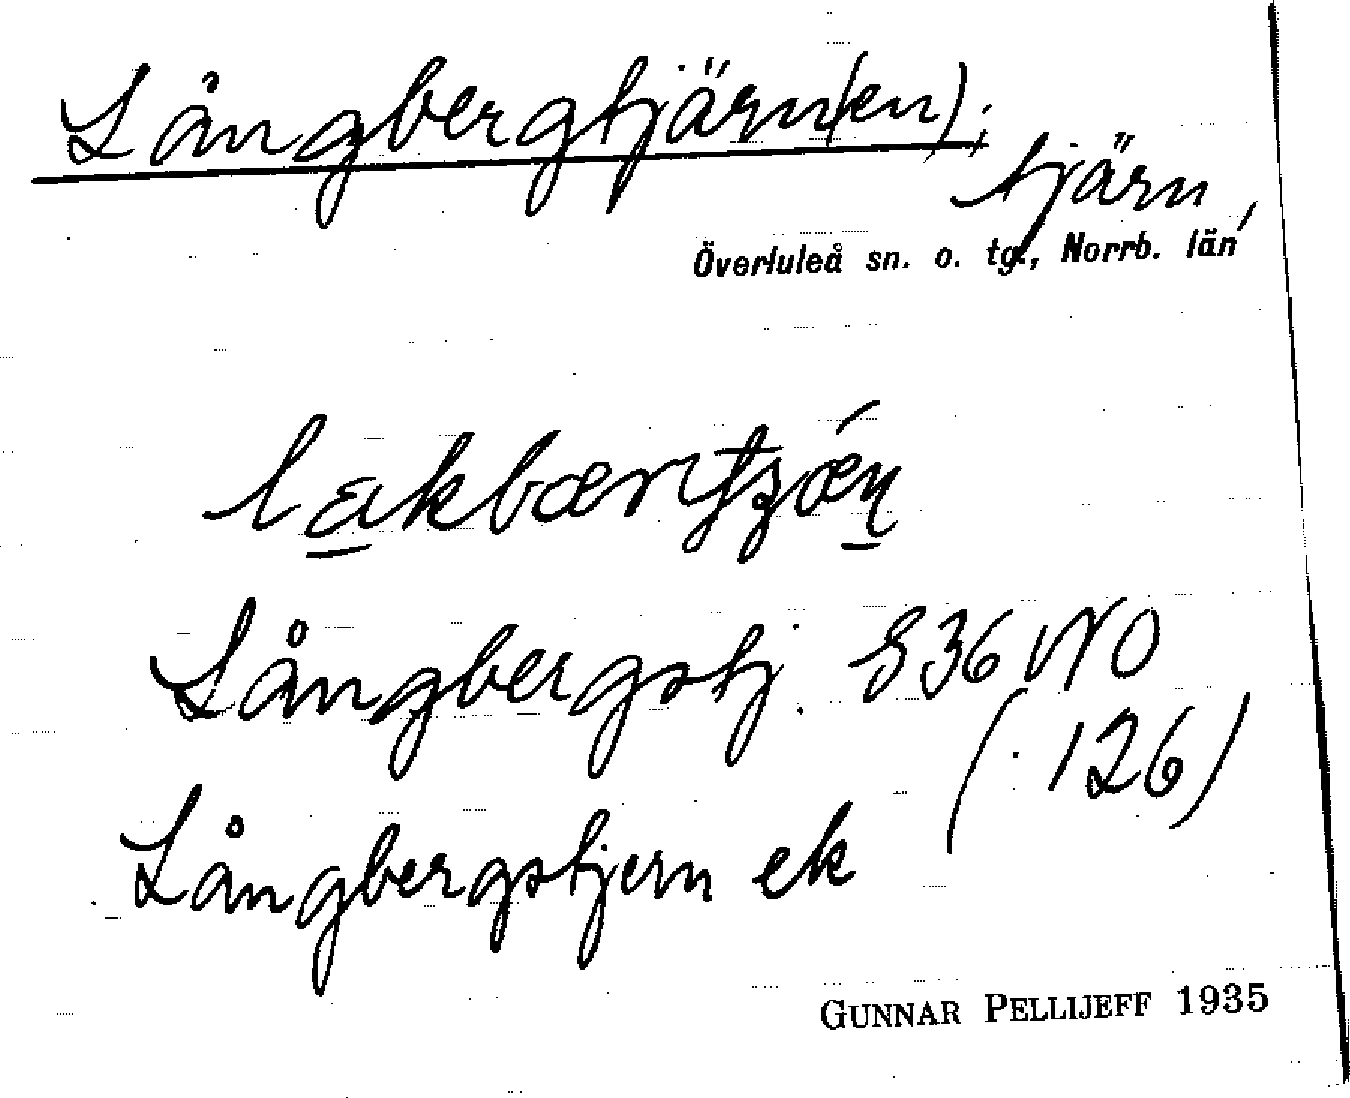 Långbergtjärn(en),
tjärn,
Överluleå sn. o. tg., Norrb. län
Långbergstj. 836 NO
(126)
Långbergstjern ek
GUNNAR PELLIJEFF 1935